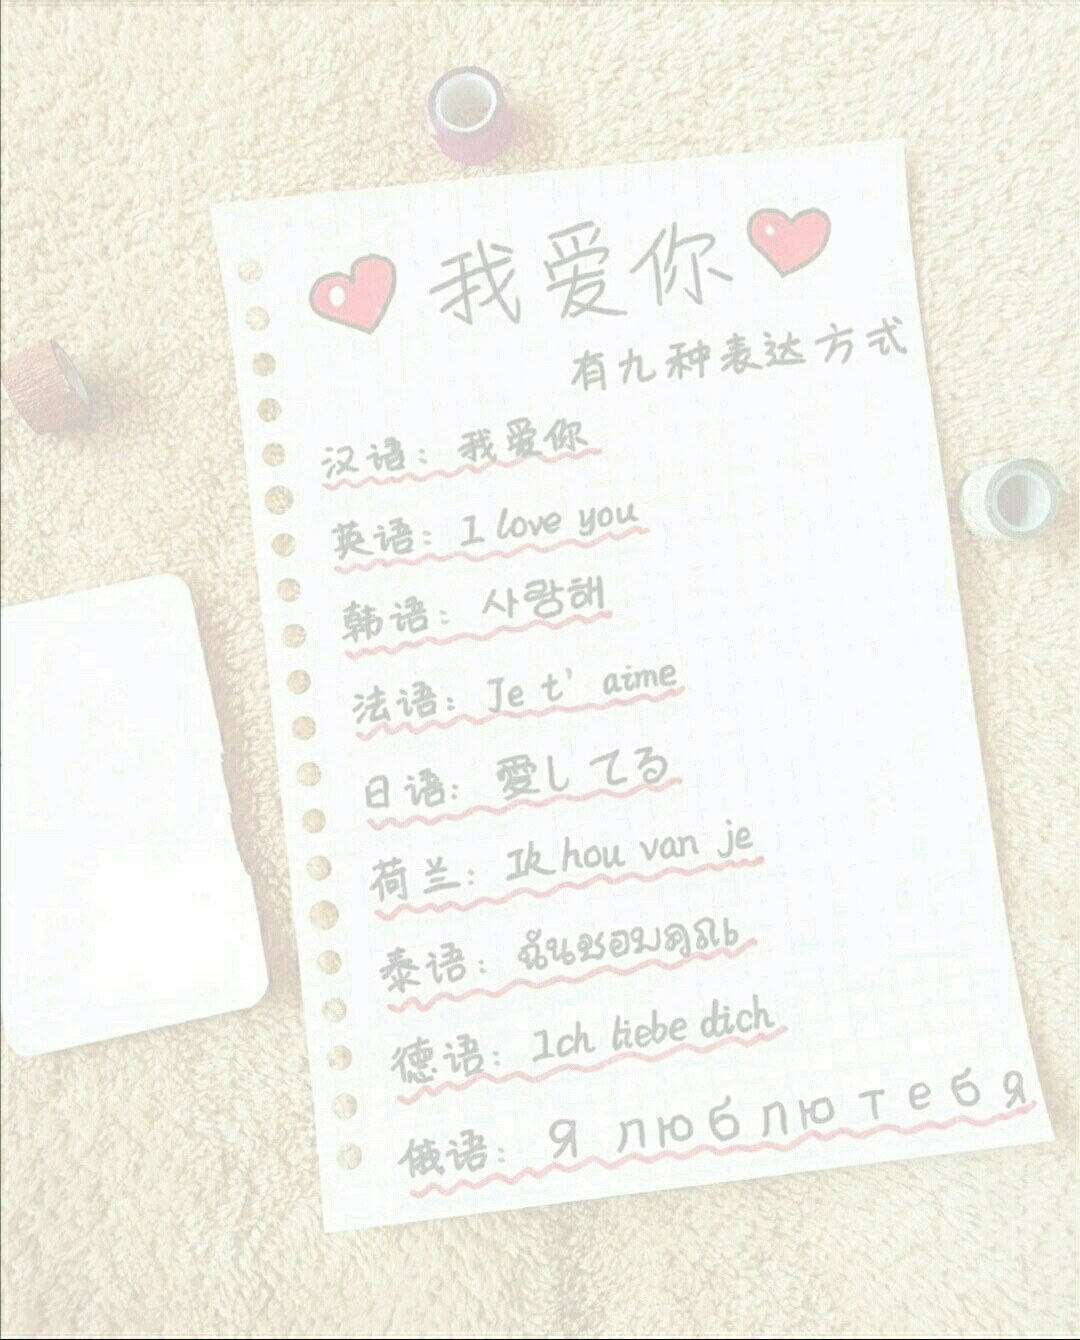 我爱你
有九种表达方式
汉语：我爱你
英语：I love you
韩语：사랑해
法语：Je t' aime
日语：愛してる
荷兰：Ik hou van je
泰语：
德语：Ich liebe dich
俄语：Я люблю тебя